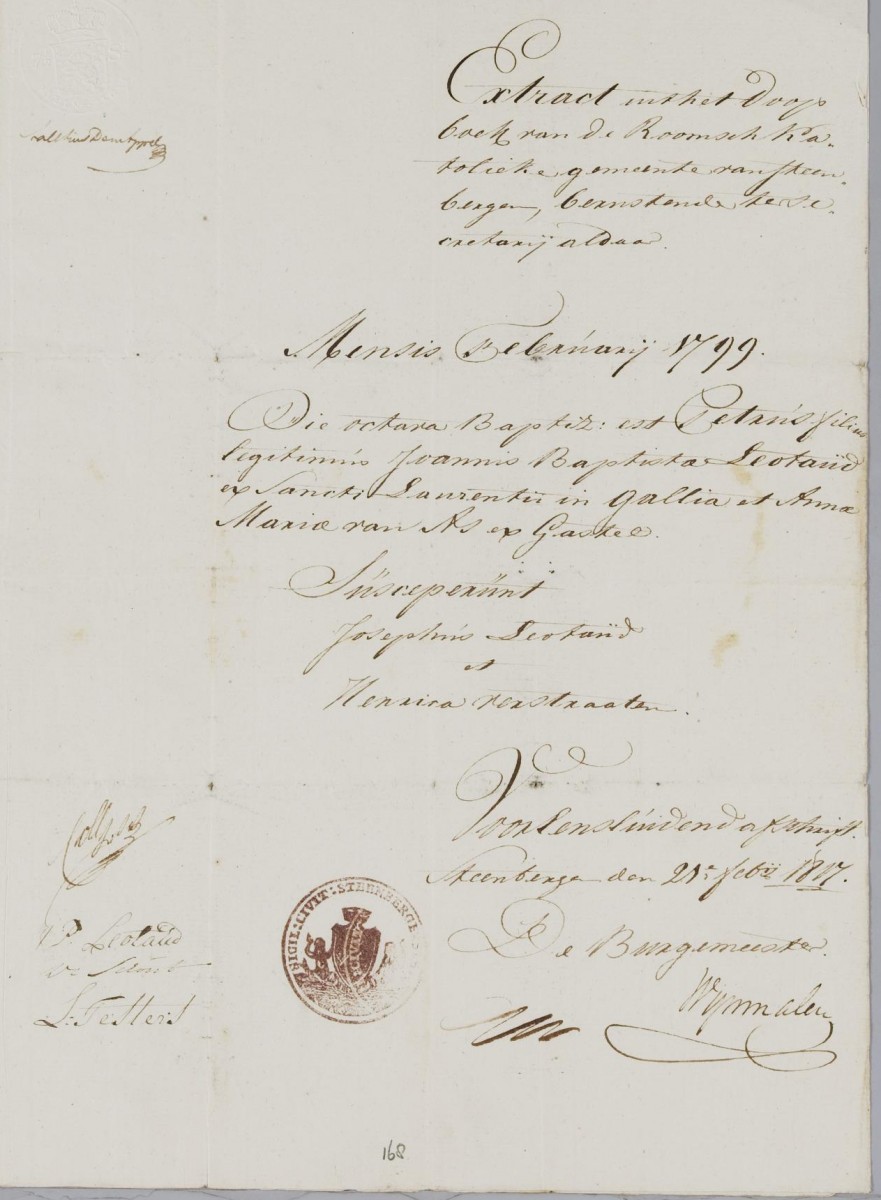 Extract uit het Doop
boek van de Roomsch Ka-
tolieke gemeente van Steen-
bergen, berustende ter se-
cretarij aldaar.
Mensis Februarij 1799.
Die octava Baptiz: est Petrus filius
legitimus Joannis Baptistæ Leotaüd
ex Sancti Laurentii in Gallia et Annæ
Mariæ van As ex Gastel.
Süsceperünt
Josephus Leotaüd
et
Henrica verstraaten.
Voor Eensluidend afschrift.
Steenberge den 21e. febij 1817.
De Burgemeester.
Wijnmalen
P. Leotaüd
SIGIL: CIVIT: STEENBERGE
168